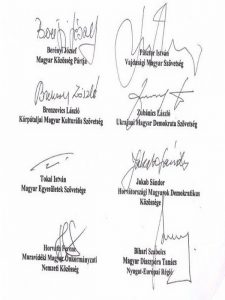 Berényi József
Magyar Közösség Pártja
Pásztor István
Vajdasági Magyar Szövetség
Brenzovics László
Kárpátaljai Magyar Kulturális Szövetség
Zubánics László
Ukrajnai Magyar Demokrata Szövetség
Tokai István
Magyar Egyesületek Szövetsége
Jakab Sándor
Horvátországi Magyarok Demokratikus
Közössége
Horváth Ferenc
Muravidéki Magyar Önkormányzati
Nemzeti Közösség
Bihari Szabolcs
Magyar Diaszpóra Tanács
Nyugat-Európai Régió